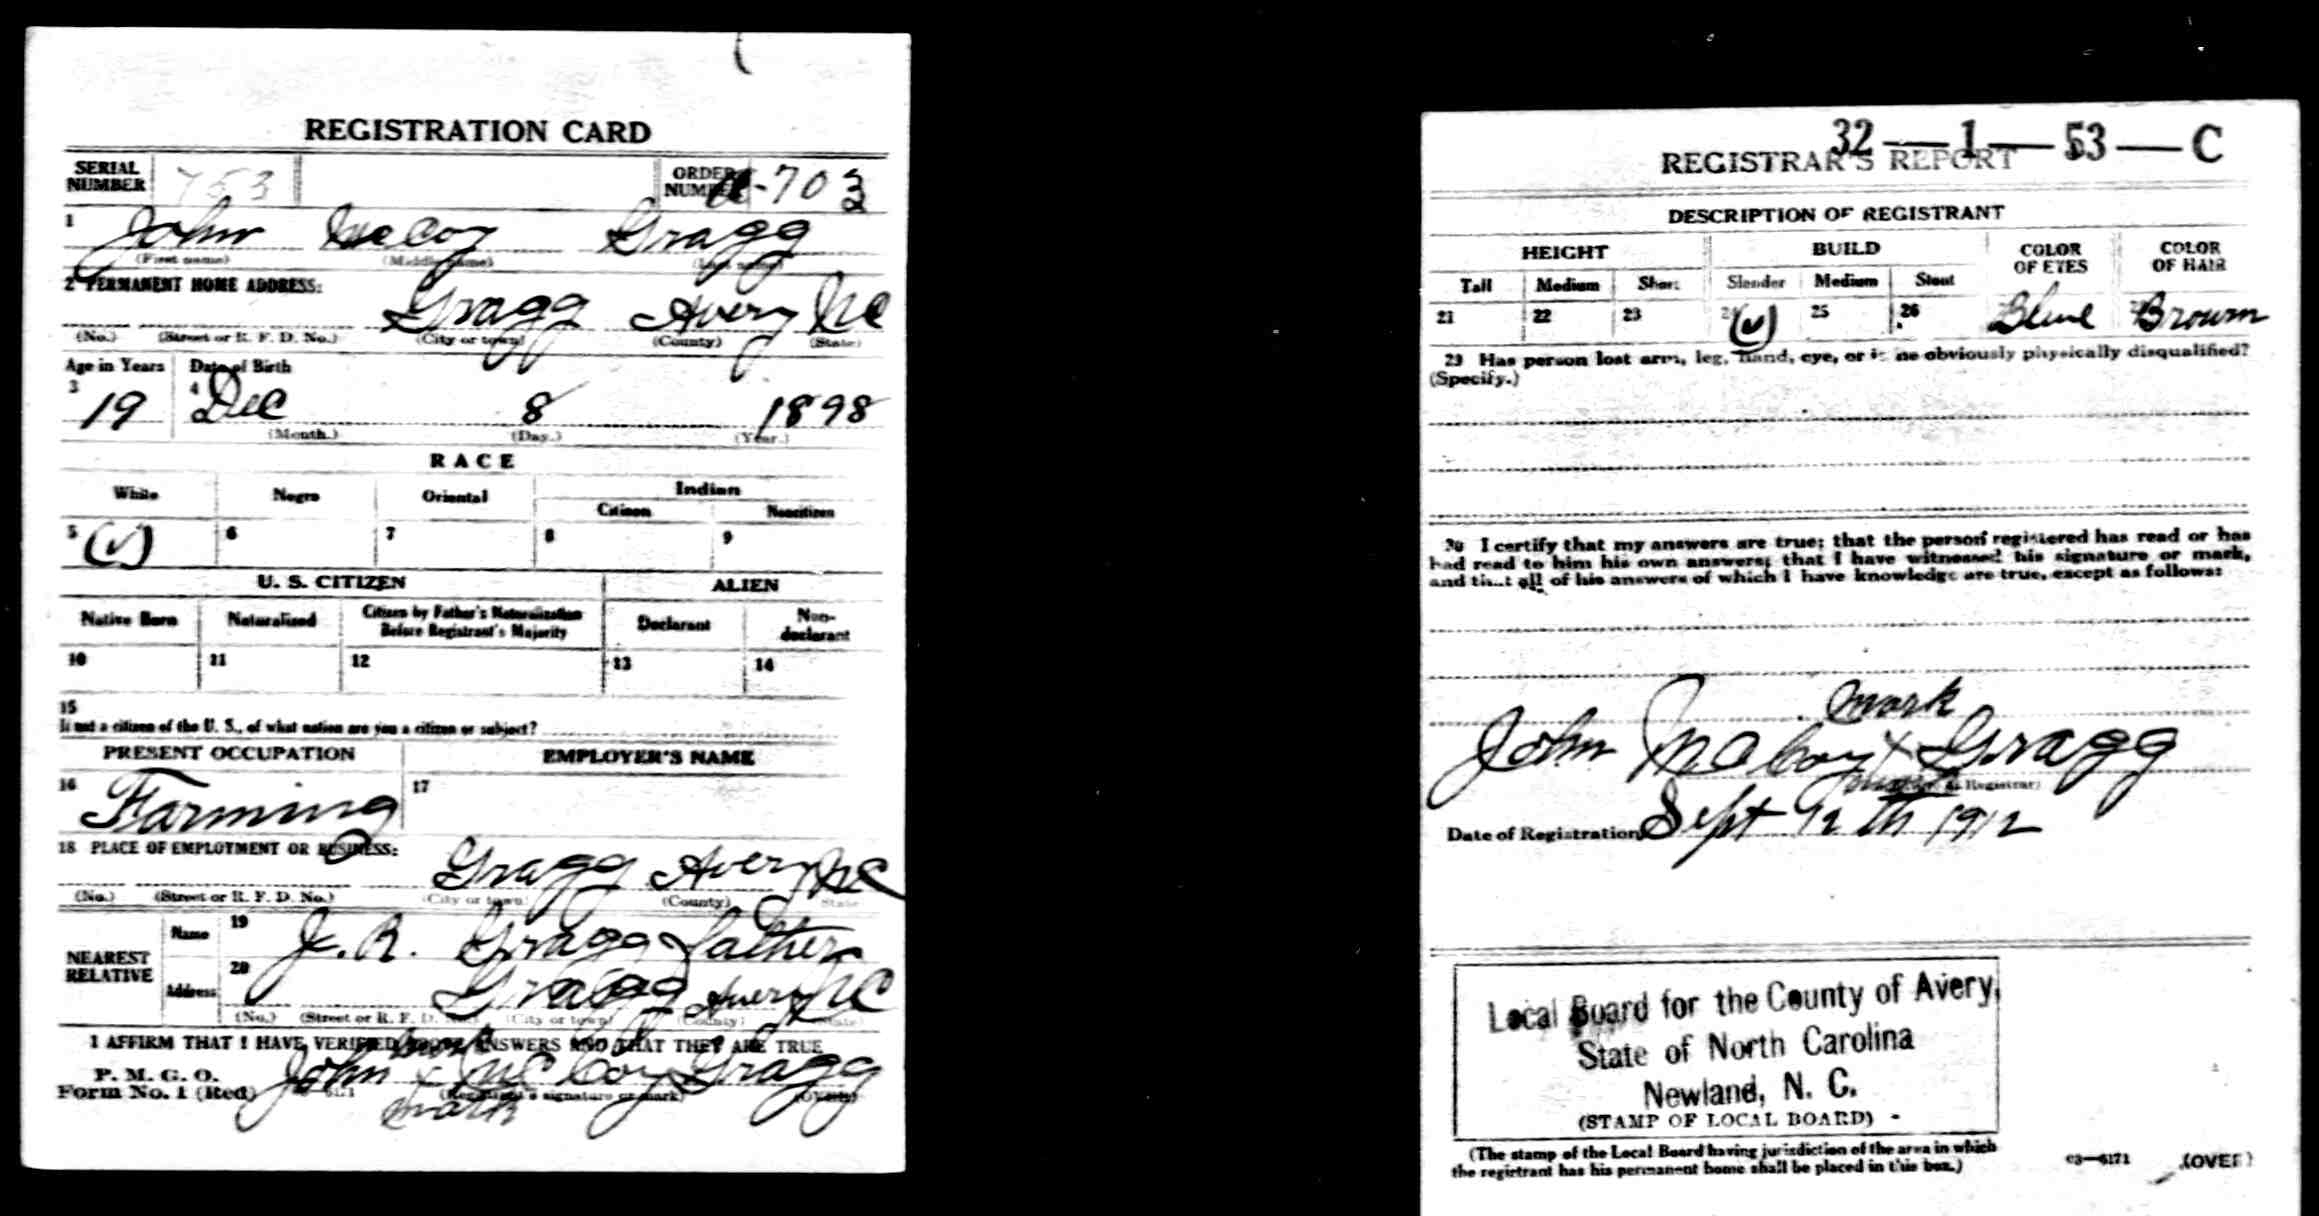 REGISTRATION CARD
SERIAL NUMBER 753 ORDER NUMBER A-703
1 John McCoy Gragg
(First name) (Middle name) (Last name)
2 PERMANENT HOME ADDRESS:
Gragg Avery NC
(No.) (Street or R. F. D. No.) (City or town) (County) (State)
Age in Years Date of Birth
3 19 4 Dec 8 1898
(Month.) (Day.) (Year.)
RACE
White Negro Oriental Indian
Citizen Noncitizen
5 (✓) 6 7 8 9
U. S. CITIZEN ALIEN
Native Born Naturalized Citizen by Father's Naturalization Before Registrant's Majority Declarant Non-declarant
10 11 12 13 14
15
If not a citizen of the U. S., of what nation are you a citizen or subject?
PRESENT OCCUPATION EMPLOYER'S NAME
16 Farming 17
18 PLACE OF EMPLOYMENT OR BUSINESS:
Gragg Avery NC
(No.) (Street or R. F. D. No.) (City or town) (County) State
NEAREST RELATIVE
Name 19 J. R. Gragg father
Address 20 Gragg Avery NC
(No.) (Street or R. F. D. No.) (City or town) (County) (State)
I AFFIRM THAT I HAVE VERIFIED ABOVE ANSWERS AND THAT THEY ARE TRUE
P. M. G. O.
Form No. 1 (Red) John x McCoy Gragg
mark (Registrant's signature or mark) (OVER)
32—1—53—C
REGISTRAR'S REPORT
DESCRIPTION OF REGISTRANT
HEIGHT BUILD COLOR OF EYES COLOR OF HAIR
Tall Medium Short Slender Medium Stout
21 22 23 24 (✓) 25 26 Blue Brown
29 Has person lost arm, leg, hand, eye, or is he obviously physically disqualified?
(Specify.)
30 I certify that my answers are true; that the person registered has read or has
had read to him his own answers; that I have witnessed his signature or mark,
and that all of his answers of which I have knowledge are true, except as follows:
mark
John McCoy x Gragg
Registrar)
Date of Registration Sept 12th 1912
Local Board for the County of Avery,
State of North Carolina
Newland, N. C.
(STAMP OF LOCAL BOARD)
(The stamp of the Local Board having jurisdiction of the area in which
the registrant has his permanent home shall be placed in this box.)
03—6171 (OVER)